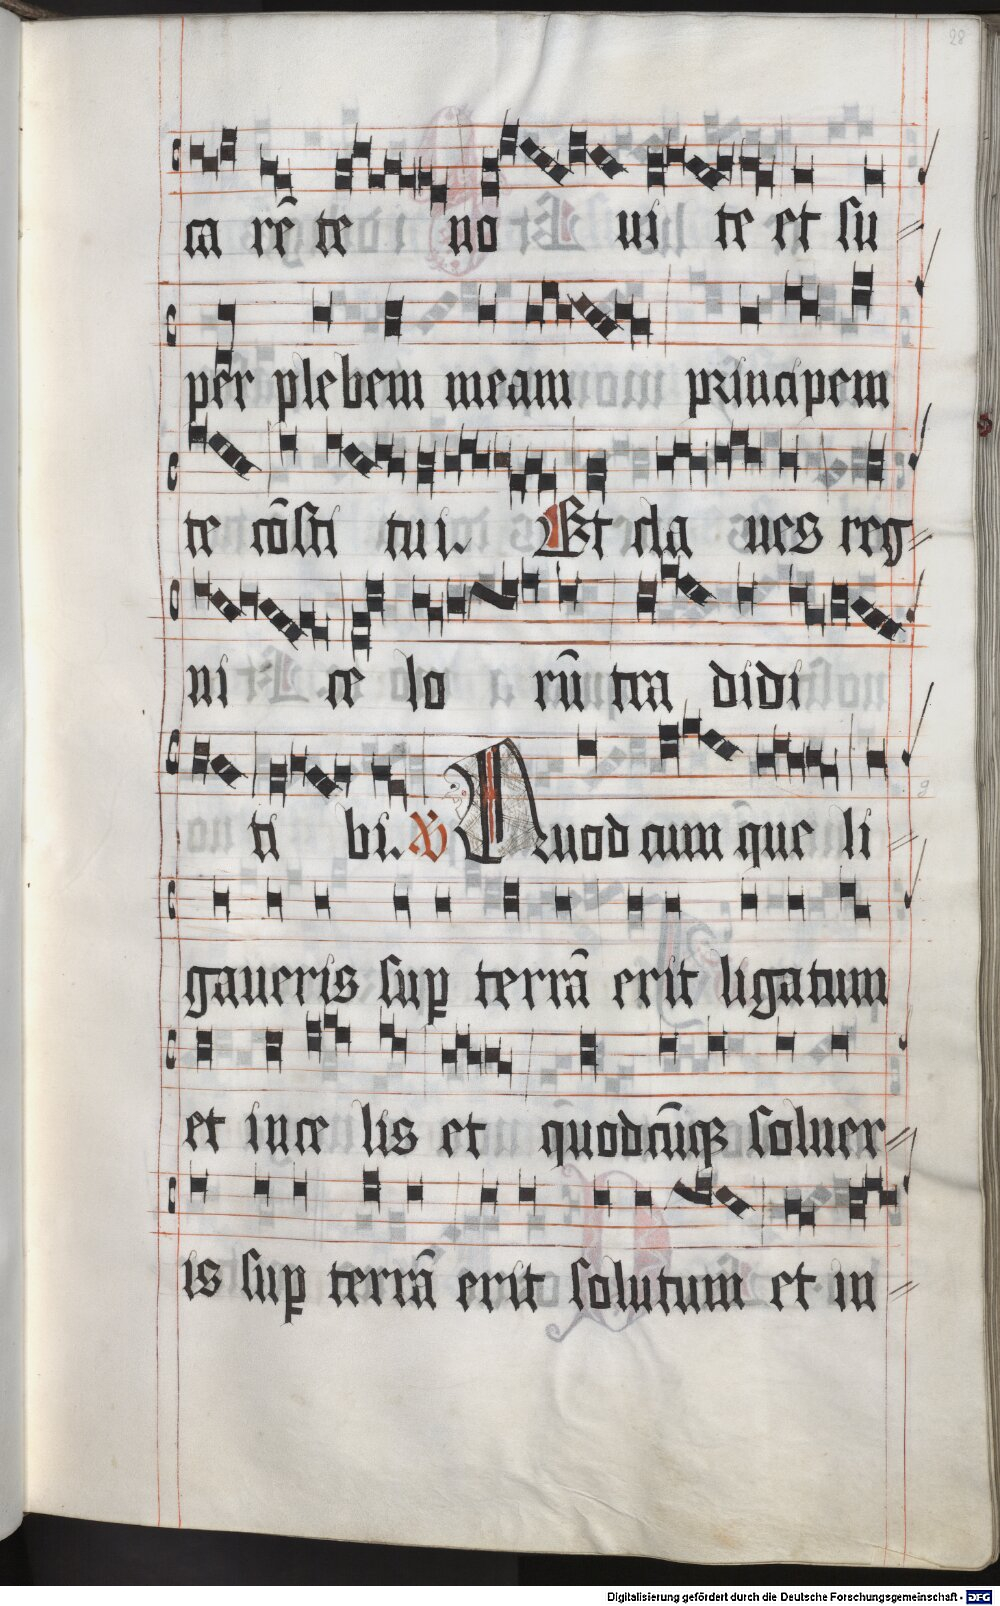 28
ca rē te no ui te et su
per plebem meam principem
te cōsti tui. Et cla ues reg
ni ce lo rū tra didi
ti bi. V Quod cum que li
gaueris suꝑ terrā erit ligatum
et in ce lis et quodcūqꝫ soluer
is suꝑ terrā erit solutum et in
Digitalisierung gefördert durch die Deutsche Forschungsgemeinschaft - DFG